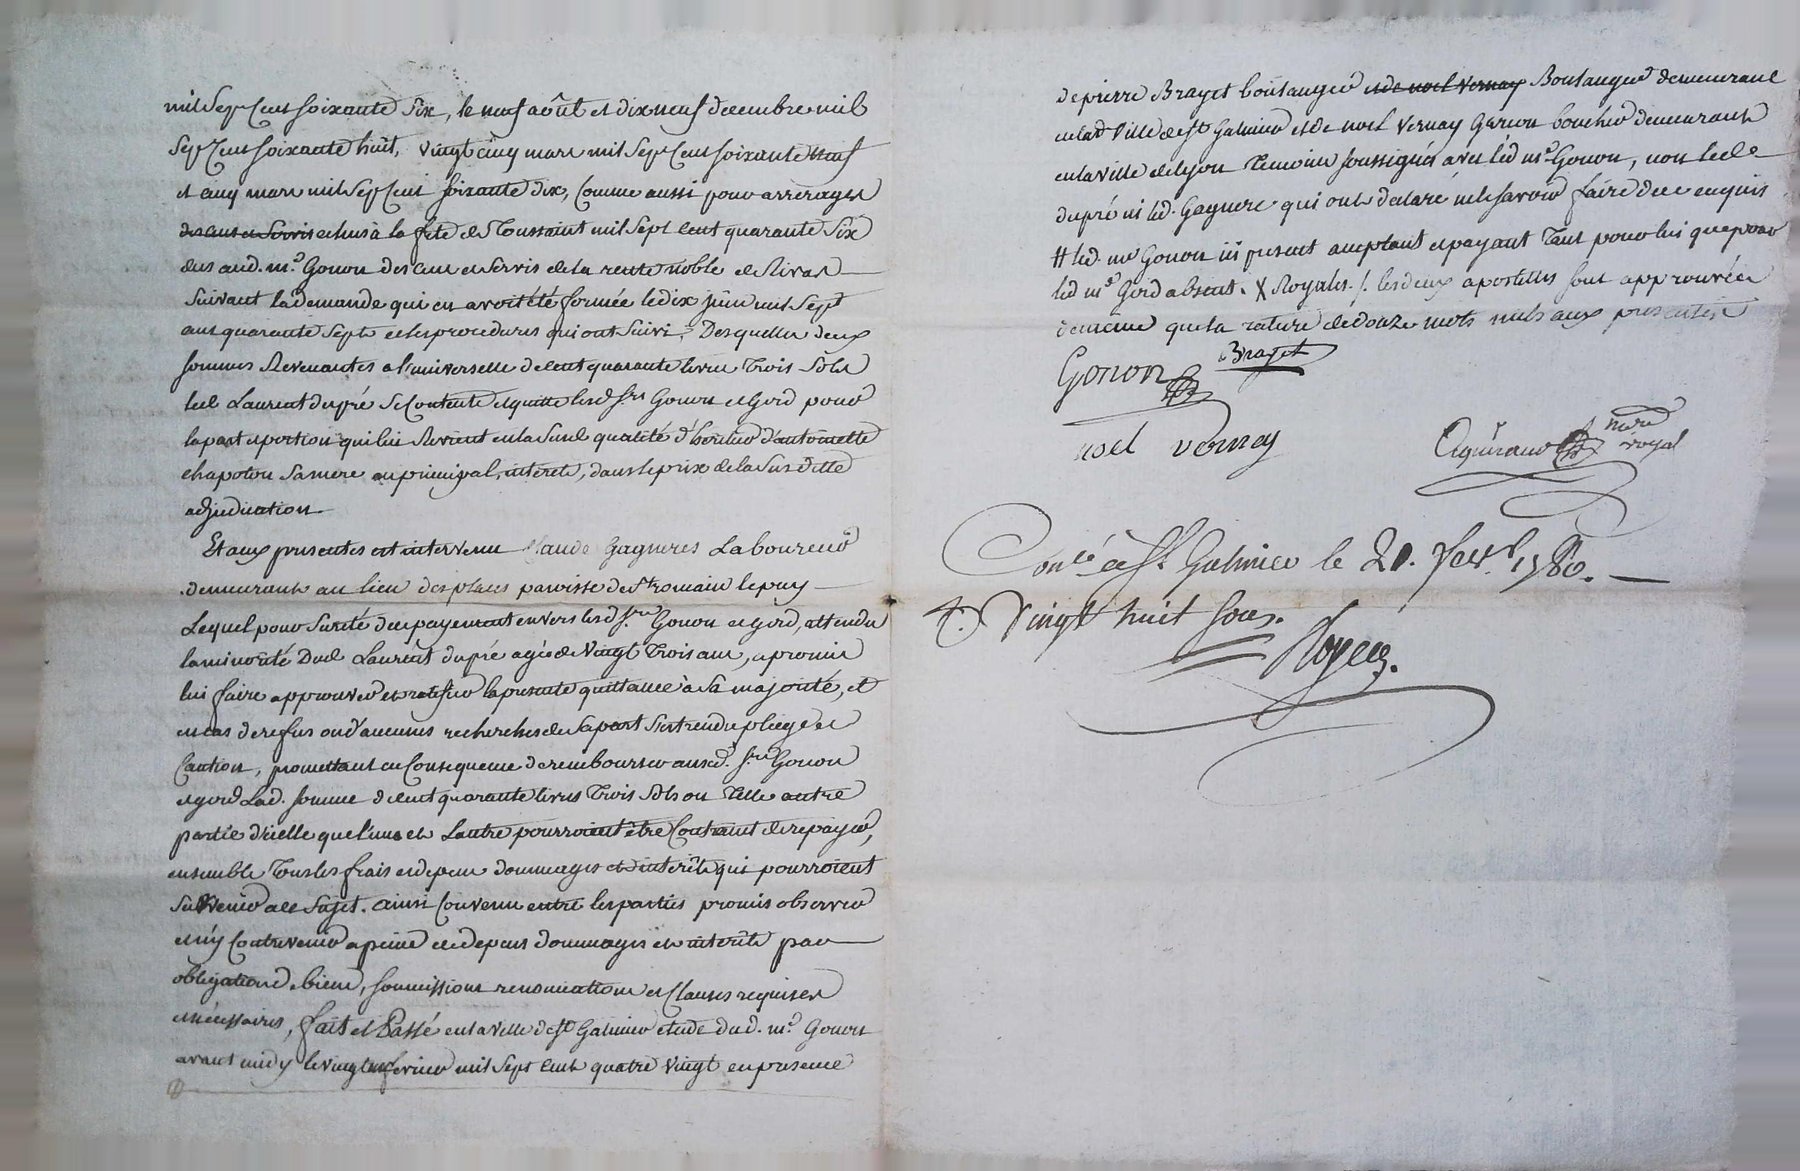 mil Sept Cent soixante Six, le neuf août et dix neuf decembre mil
Sept Cent soixante huit, vingt Cinq mars mil Sept Cent soixante neuf
et Cinq mars mil Sept Cent soixante dix, Comme aussi pour arrerages
des cens et Servis echus à la fete de Toussaint mil Sept Cent quarante Six
dus aud. me. Gonon des cens et Servis de la rente noble de Rivas
Suivant la demande qui en avoit été formée le dix juin mil Sept
Cent quarante Sept et les procedures qui ont Suivi, Desquelles deux
sommes Revenantes a l'universelle de Cent quarante livres Trois Sols
led Laurent dupré Se Contente et quitte lesd. srs Gonon et Gord pour
la part et portion qui lui Revient en la Susd. qualité d'heritier d'antoinette
chapoton Sa mere au principal, interets, dans le prix de la Sus ditte
adjudication.
Et aux presentes est intervenu Claude Gagneres Laboureur
demeurant au lieu des places paroisse de St. romain le puy
Lequel pour Sureté du payement envers lesd. srs. Gonon et Gord, attendu
la minorité Dud. Laurent dupré agé de Vingt Trois ans, a promis
lui faire approuver et ratifier la presente quittance à Sa majorité, et
en cas de refus ou d'aucunes recherches de Sa part S'est rendu pleige et
Caution, promettant en Consequence de rembourser auxd. srs. Gonon
et gord Lad. somme de Cent quarante livres Trois Sols ou Telle autre
partie d'icelle que l'une et L'autre pourroient être Contraint de repayer,
ensemble Tous les frais et depens dommages et interêts qui pourroient
Survenir a ce Sujet. ainsi Convenu entre les parties promis observer
et n'y Contrevenir a peine de depens dommages et interêts par
obligation de biens, soumissions renonciations et Clauses requises
et nécessaires, fait et Passé en la Ville de St Galmier etude dud. me. Gonon
avant midy le vingt fevrier mil Sept Cent quatre Vingt en presence
de pierre Brayet boulanger et de noel Vernay Boulanger demeurant
en lad Ville de St Galmier et de noel Vernay Garcon boucher demeurant
en la Ville de Lyon Temoins soussignés avec led. me. Gonon, non led.
dupré ni led. Gagnere qui ont declaré ne le Savoir faire de ce enquis
# led. me Gonon ici present acceptant et payant Tant pour lui que pour
led me. Gord absent. X Royales. /. les deux apostilles sont approuvées
de meme que la rature de douze mots nuls aux presentes
Gonon Brayet
noel vernay
nore royal
Contlé à St. Galmier le 21. fevr. 1780.
R. Vingt huit sous.